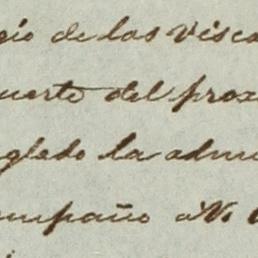 gio de las Visca
uerte del prox
glado la admi
ompaño á V.